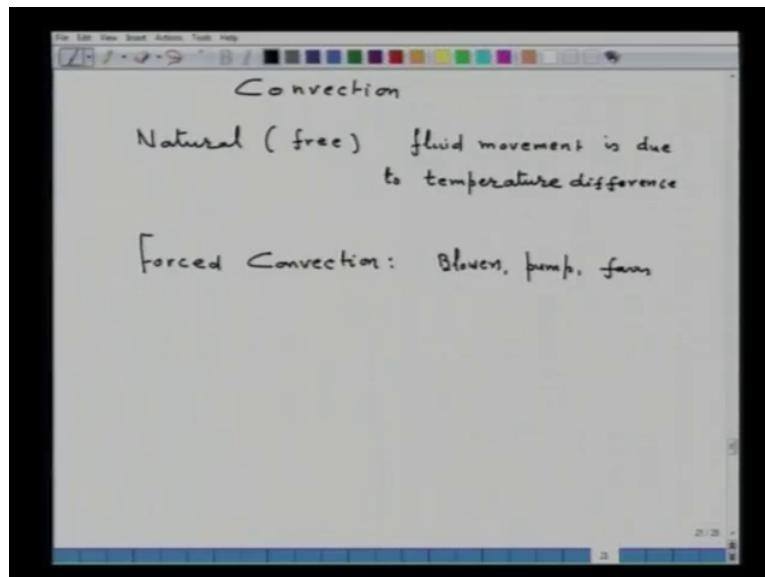 File Edit View Insert Actions Tools Help
Convection
Natural (free) fluid movement is due
to temperature difference
Forced Convection: Blower, pump, fans
21